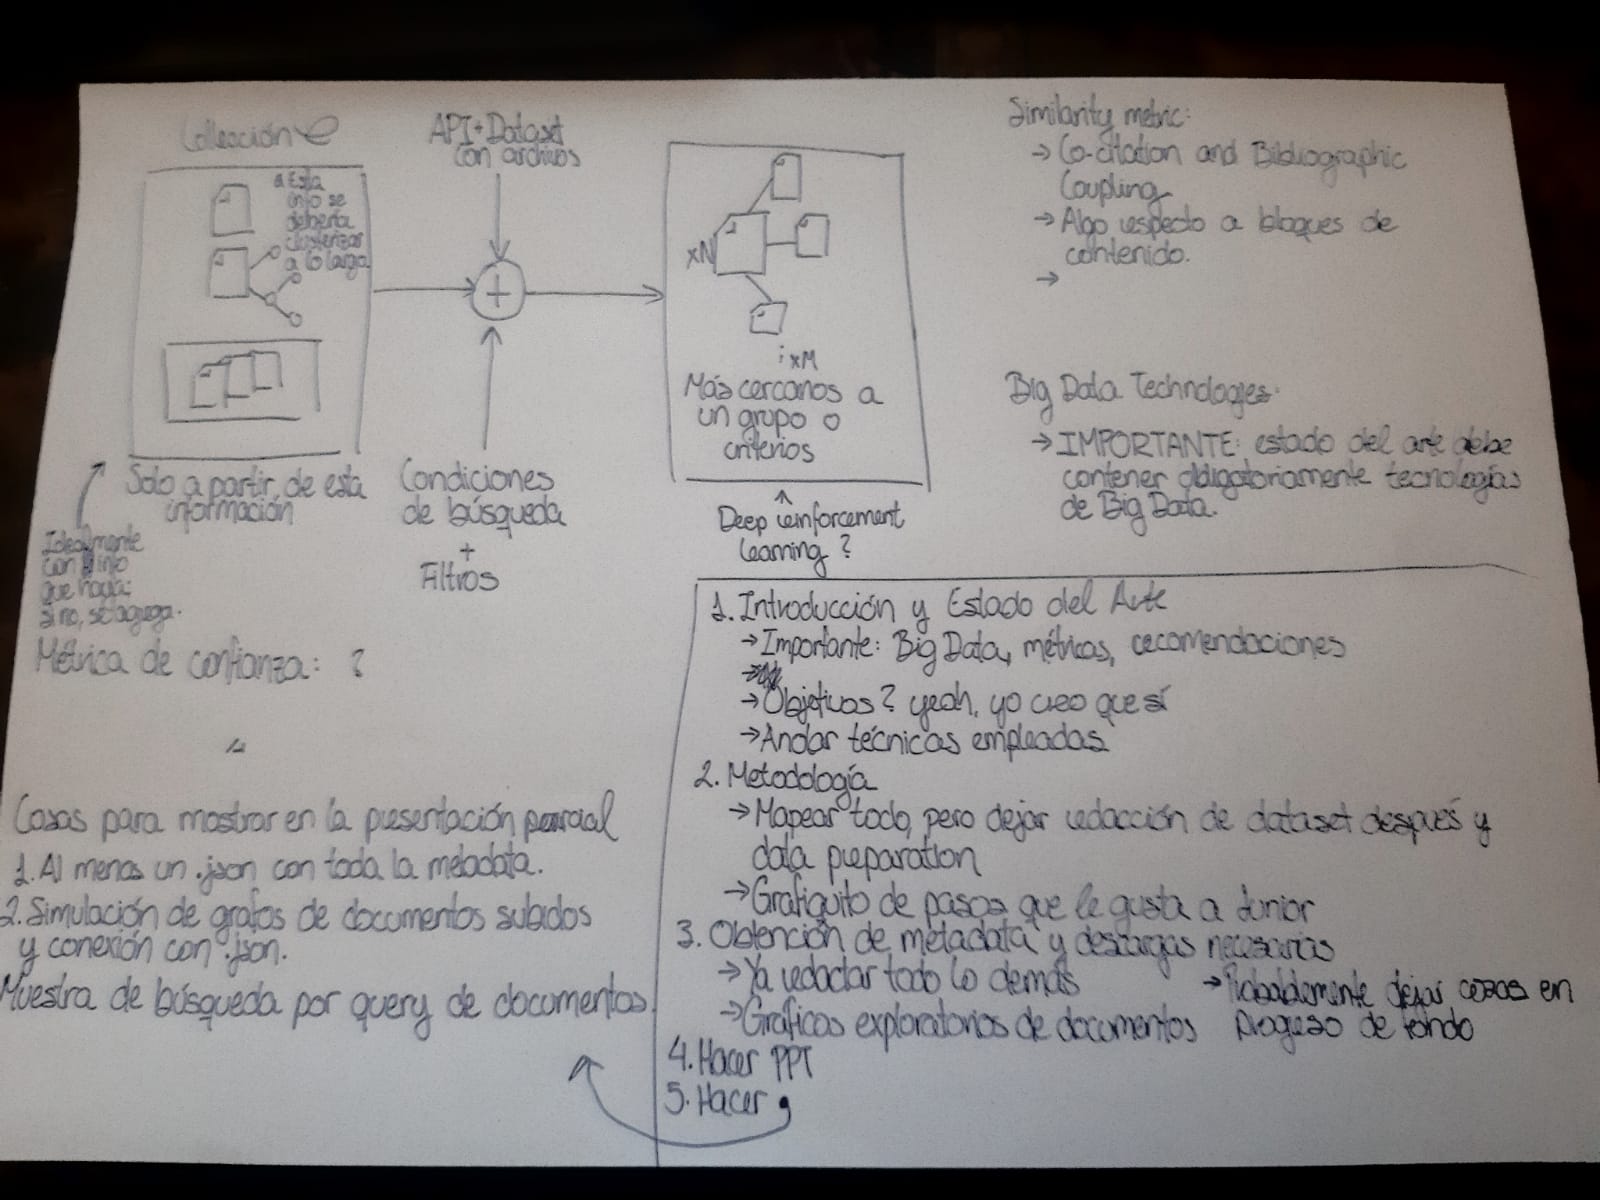 Collección e
Esta
info se
debería
clusterizar
a lo largo
Solo a partir de esta
información
Idealmente
con info
que haya;
si no, se agrega.
Métrica de confianza: ?
API + Dataset
con archivos
+
Condiciones
de búsqueda
+
Filtros
xN
xM
Más cercanos a
un grupo o
criterios
Deep reinforcement
Learning ?
Similarity metric:
→ Co-citation and Bibliographic
Coupling
→ Algo respecto a bloques de
contenido.
→
Big Data Technologies:
→ IMPORTANTE: estado del arte debe
contener obligatoriamente tecnologías
de Big Data.
Cosas para mostrar en la presentación parcial
1. Al menos un .json con toda la metadata.
2. Simulación de grafos de documentos subidos
y conexión con .json.
Muestra de búsqueda por query de documentos.
1. Introducción y Estado del Arte
→ Importante: Big Data, métricas, recomendaciones
→ Objetivos? yeah, yo creo que sí
→ Andar técnicas empleadas
2. Metodología
→ Mapear todo, pero dejar redacción de dataset después y
data preparation
→ Grafiquito de pasos que le gusta a Junior
3. Obtención de metadata y descargas necesarias
→ Ya redactar todo lo demás
→ Probablemente dejar cosas en
progreso de fondo
→ Gráficos exploratorios de documentos
4. Hacer PPT
5. Hacer